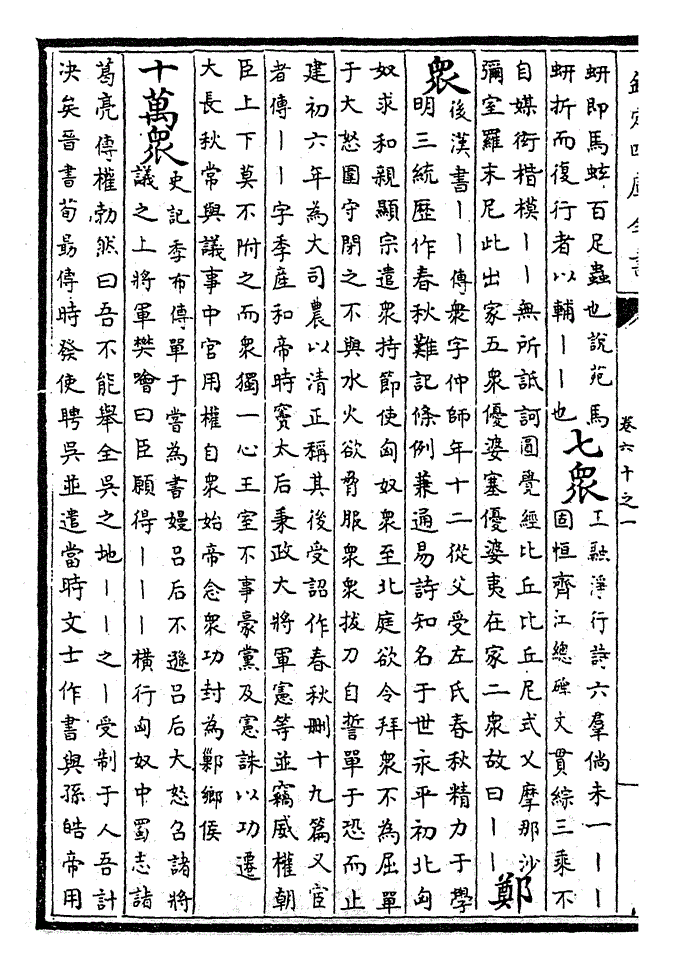 欽定四庫全書
卷六十之一
蚈即馬蚿百足蟲也說苑馬
蚈折而復行者以輔丨丨也
七衆
王融淨行詩六羣倘未一丨丨
固恒齊江總碑文貫綜三乘不
自媒衒楷模丨丨無所詆訶圓覺經比丘比丘尼式乂摩那沙
彌室羅末尼此出家五衆優婆塞優婆夷在家二衆故曰丨丨
鄭
衆
後漢書丨丨傳衆字仲師年十二從父受左氏春秋精力于學
明三統歷作春秋難記條例兼通易詩知名于世永平初北匈
奴求和親顯宗遣衆持節使匈奴衆至北庭欲令拜衆不為屈單
于大怒圍守閉之不與水火欲脅服衆衆拔刀自誓單于恐而止
建初六年為大司農以清正稱其後受詔作春秋刪十九篇又宦
者傳丨丨字季產和帝時竇太后秉政大將軍憲等並竊威權朝
臣上下莫不附之而衆獨一心王室不事豪黨及憲誅以功遷
大長秋常與議事中官用權自衆始帝念衆功封為鄛鄉侯
十萬衆
史記季布傳單于嘗為書嫚呂后不遜呂后大怒召諸將
議之上將軍樊噲曰臣願得丨丨丨橫行匈奴中蜀志諸
葛亮傳權勃然曰吾不能舉全吳之地丨丨之丨受制于人吾計
決矣晉書荀勗傳時發使聘吳並遣當時文士作書與孫皓帝用